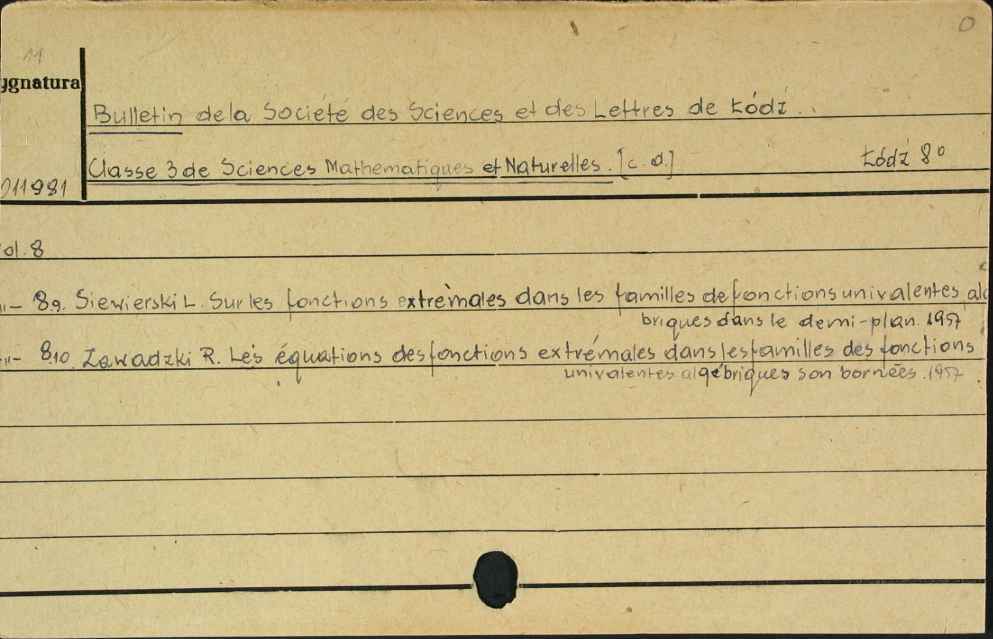 11
0
ygnatura
Bulletin de la Société des Sciences et des Lettres de Łódź
Classe 3 de Sciences Mathematiques et Naturelles. [c. d.] Łódź 8°
011981
ol. 8
-"- 8,9. Siewierski L. Sur les fonctions extrèmales dans les familles de fonctions univalentes alg
briques dans le demi-plan. 1957
-"- 8,10. Zawadzki R. Les équations des fonctions extrémales dans les familles des fonctions
univalentes algébriques son bornées. 1957